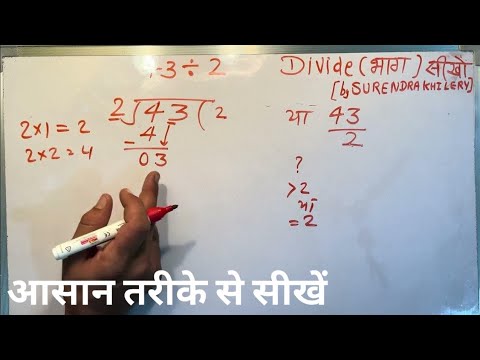 -3 ÷ 2
Divide (भाग) सीखो
[by SURENDRA KHILERY]
2×1 = 2
2×2 = 4
2√43(2
- 4↓
03
या 43
2
?
>2
या
=2
आसान तरीके से सीखें